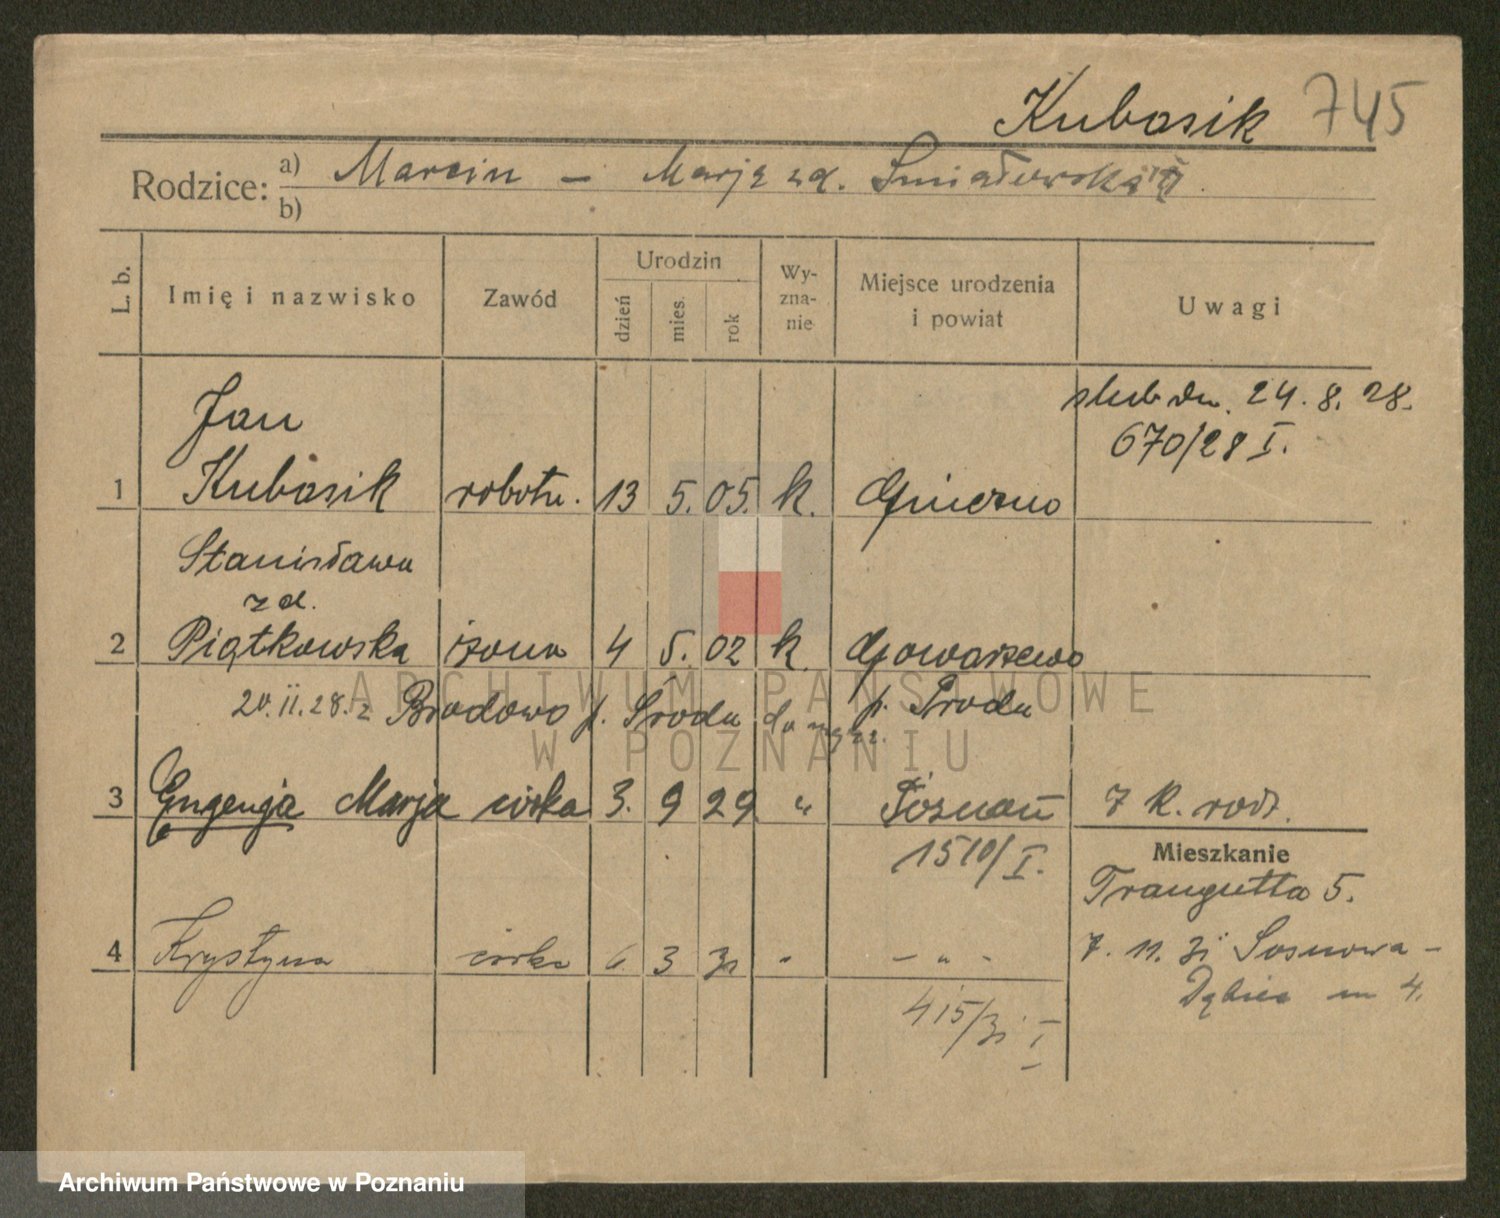 Kubasik 745
Rodzice: a) Marcin – Marja zd. Śmiałowska
b)
L. b. Imię i nazwisko Zawód Urodzin dzień mies. rok Wy-zna-nie Miejsce urodzenia i powiat Uwagi
ślub dn. 24.8.28.
670/28 I.
Jan
1 Kubasik robotn. 13 5. 05. k. Gniezno
Stanisława
zd.
2 Piątkowska żona 4 5. 02 k. Gowarzewo
20.II.28. z Brodowo p. Środa p. Środa
3 Eugenja Marja córka 3. 9 29 " Poznań 7 k. rodz.
1510/I.
Mieszkanie
Traugutta 5.
4 Krystyna córka 6 3 31 " – " –
7. 11. 31 Sosnowa –
Dębiec m 4.
415/31 I
ARCHIWUM PAŃSTWOWE
W POZNANIU
Archiwum Państwowe w Poznaniu